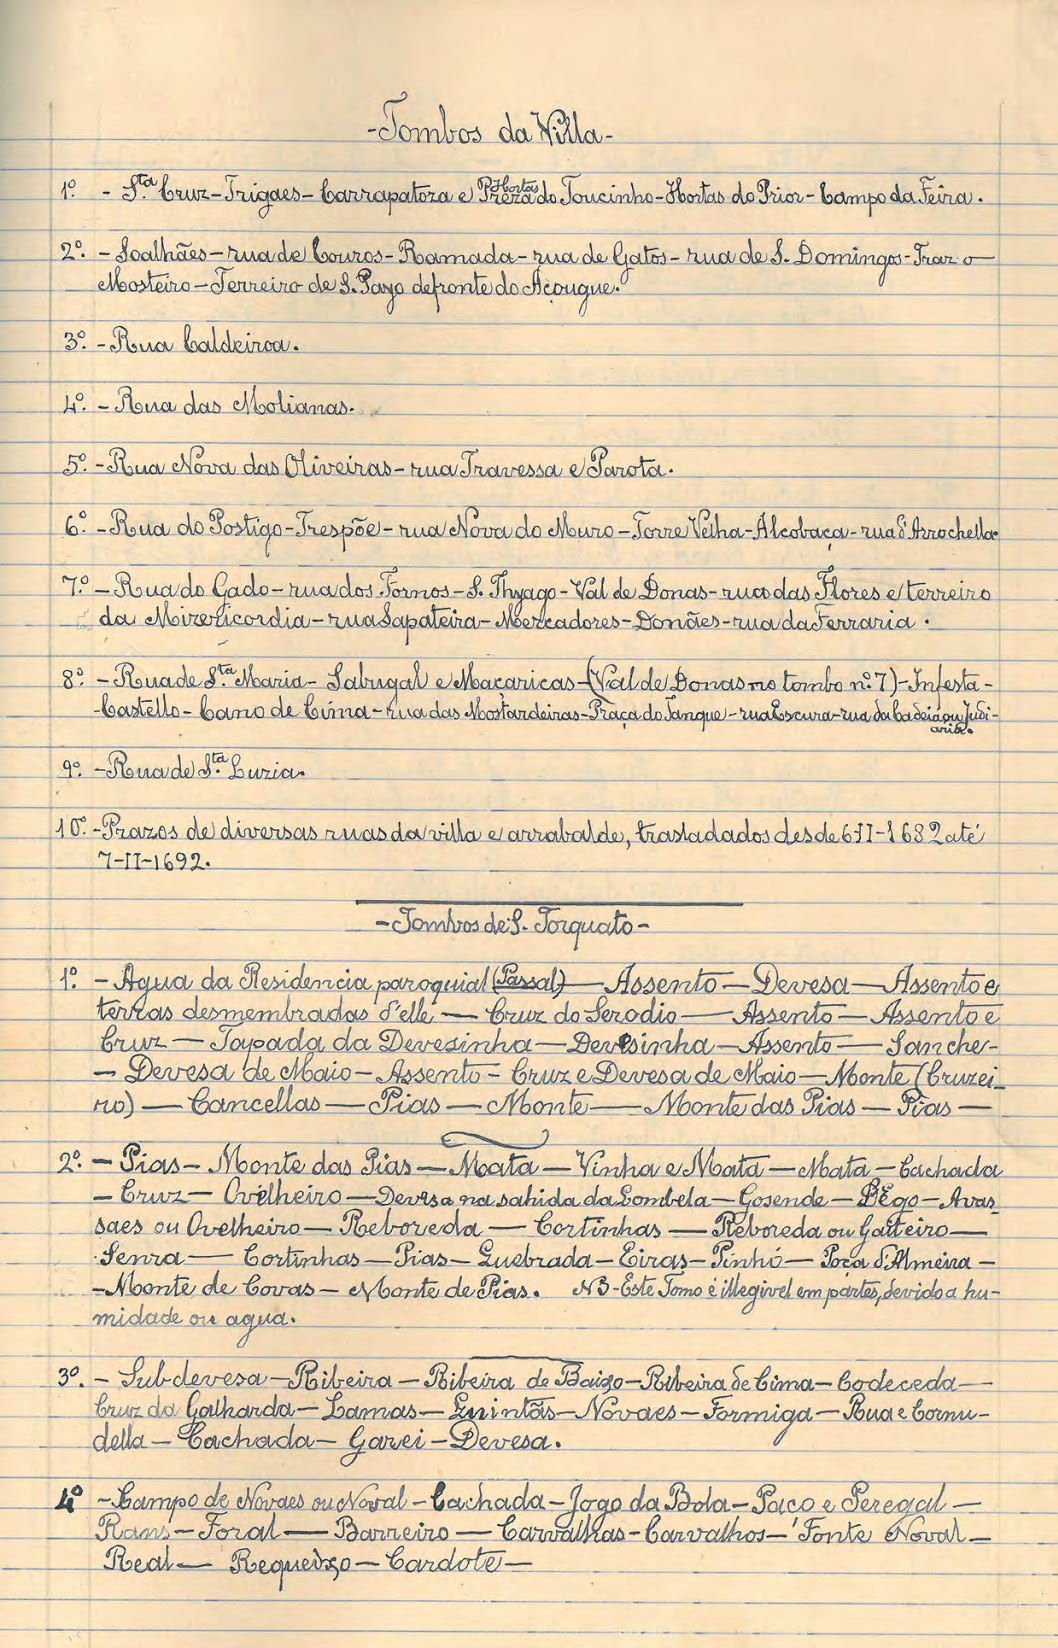 -Tombos da Villa-
1º. - Sta. Cruz-Trigaes-Carrapatoza e Preza Hortas do Toucinho-Hortas do Prior-Campo da Feira.
2º. - Soalhães-rua de Couros-Ramada-rua de Gatos-rua de S. Domingos-Traz o
Mosteiro-Terreiro de S. Payo defronte do Açougue.
3º. - Rua Caldeiroa.
4º. - Rua das Molianas.
5º. - Rua Nova das Oliveiras-rua Travessa e Parota.
6º. - Rua do Postigo-Trespõe-rua Nova do Muro-Torre Velha-Alcobaça-rua d'Arrochella
7º. - Rua do Gado-rua dos Fornos-S. Thyago-Val de Donas-rua das Flores e terreiro
da Mizericordia-rua Sapateira-Mercadores-Donães-rua da Ferraria.
8º. - Rua de Sta. Maria-Sabugal e Maçaricas-(Val de Donas no tombo nº. 7)-Infesta-
-Castello-Cano de Cima-rua das Mostardeiras-Praça do Tanque-rua Escura-rua da Cadeia ou Judi-
aria.
9º. - Rua de Sta. Luzia.
10º. - Prazos de diversas ruas da villa e arrabalde, trasladados desde 6-II-1682 até
7-II-1692.
-Tombos de S. Torquato-
1º. - Agua da Residencia paroquial (Passal)-Assento-Devesa-Assento e
terras desmembradas d'elle-Cruz do Serodio-Assento-Assento e
Cruz-Tapada da Devesinha-Devesinha-Assento-Sanche-
-Devesa de Maio-Assento-Cruz e Devesa de Maio-Monte (Cruzei-
ro)-Cancellas-Pias-Monte-Monte das Pias-Pias-
2º. - Pias-Monte das Pias-Mata-Vinha e Mata-Mata-Cachada
-Cruz-Ovelheiro-Devesa na sahida da Lombela-Gosende-Pêgo-Avas
saes ou Ovelheiro-Reboreda-Cortinhas-Reboreda ou Gaiteiro-
Senra-Cortinhas-Pias-Quebrada-Eiras-Pinhó-Poça d'Almeira-
-Monte de Covas-Monte de Pias. NB-Este Tomo é illegivel em partes, devido a hu-
midade ou agua.
3º. - Subdevesa-Ribeira-Ribeira de Baixo-Ribeira de Cima-Codeceda-
Cruz da Galharda-Lamas-Quintãs-Novaes-Formiga-Rua e Cornu-
della-Cachada-Garei-Devesa.
4º - Campo de Novaes ou Noval-Cachada-Jogo da Bola-Paço e Peregal-
Rans-Foral-Barreiro-Carvalhas-Carvalhos-Fonte Noval-
Real-Requeixo-Cardote-